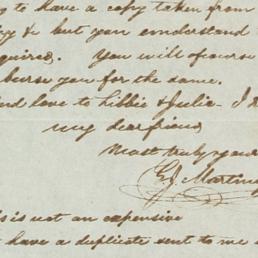 to have a copy taken from
& but you understand
quired. You will of course
burse you for the same.
nd love to Libbie & Julia - I
my dear friend
Most truly your
is is not an expensive
have a duplicate sent to me